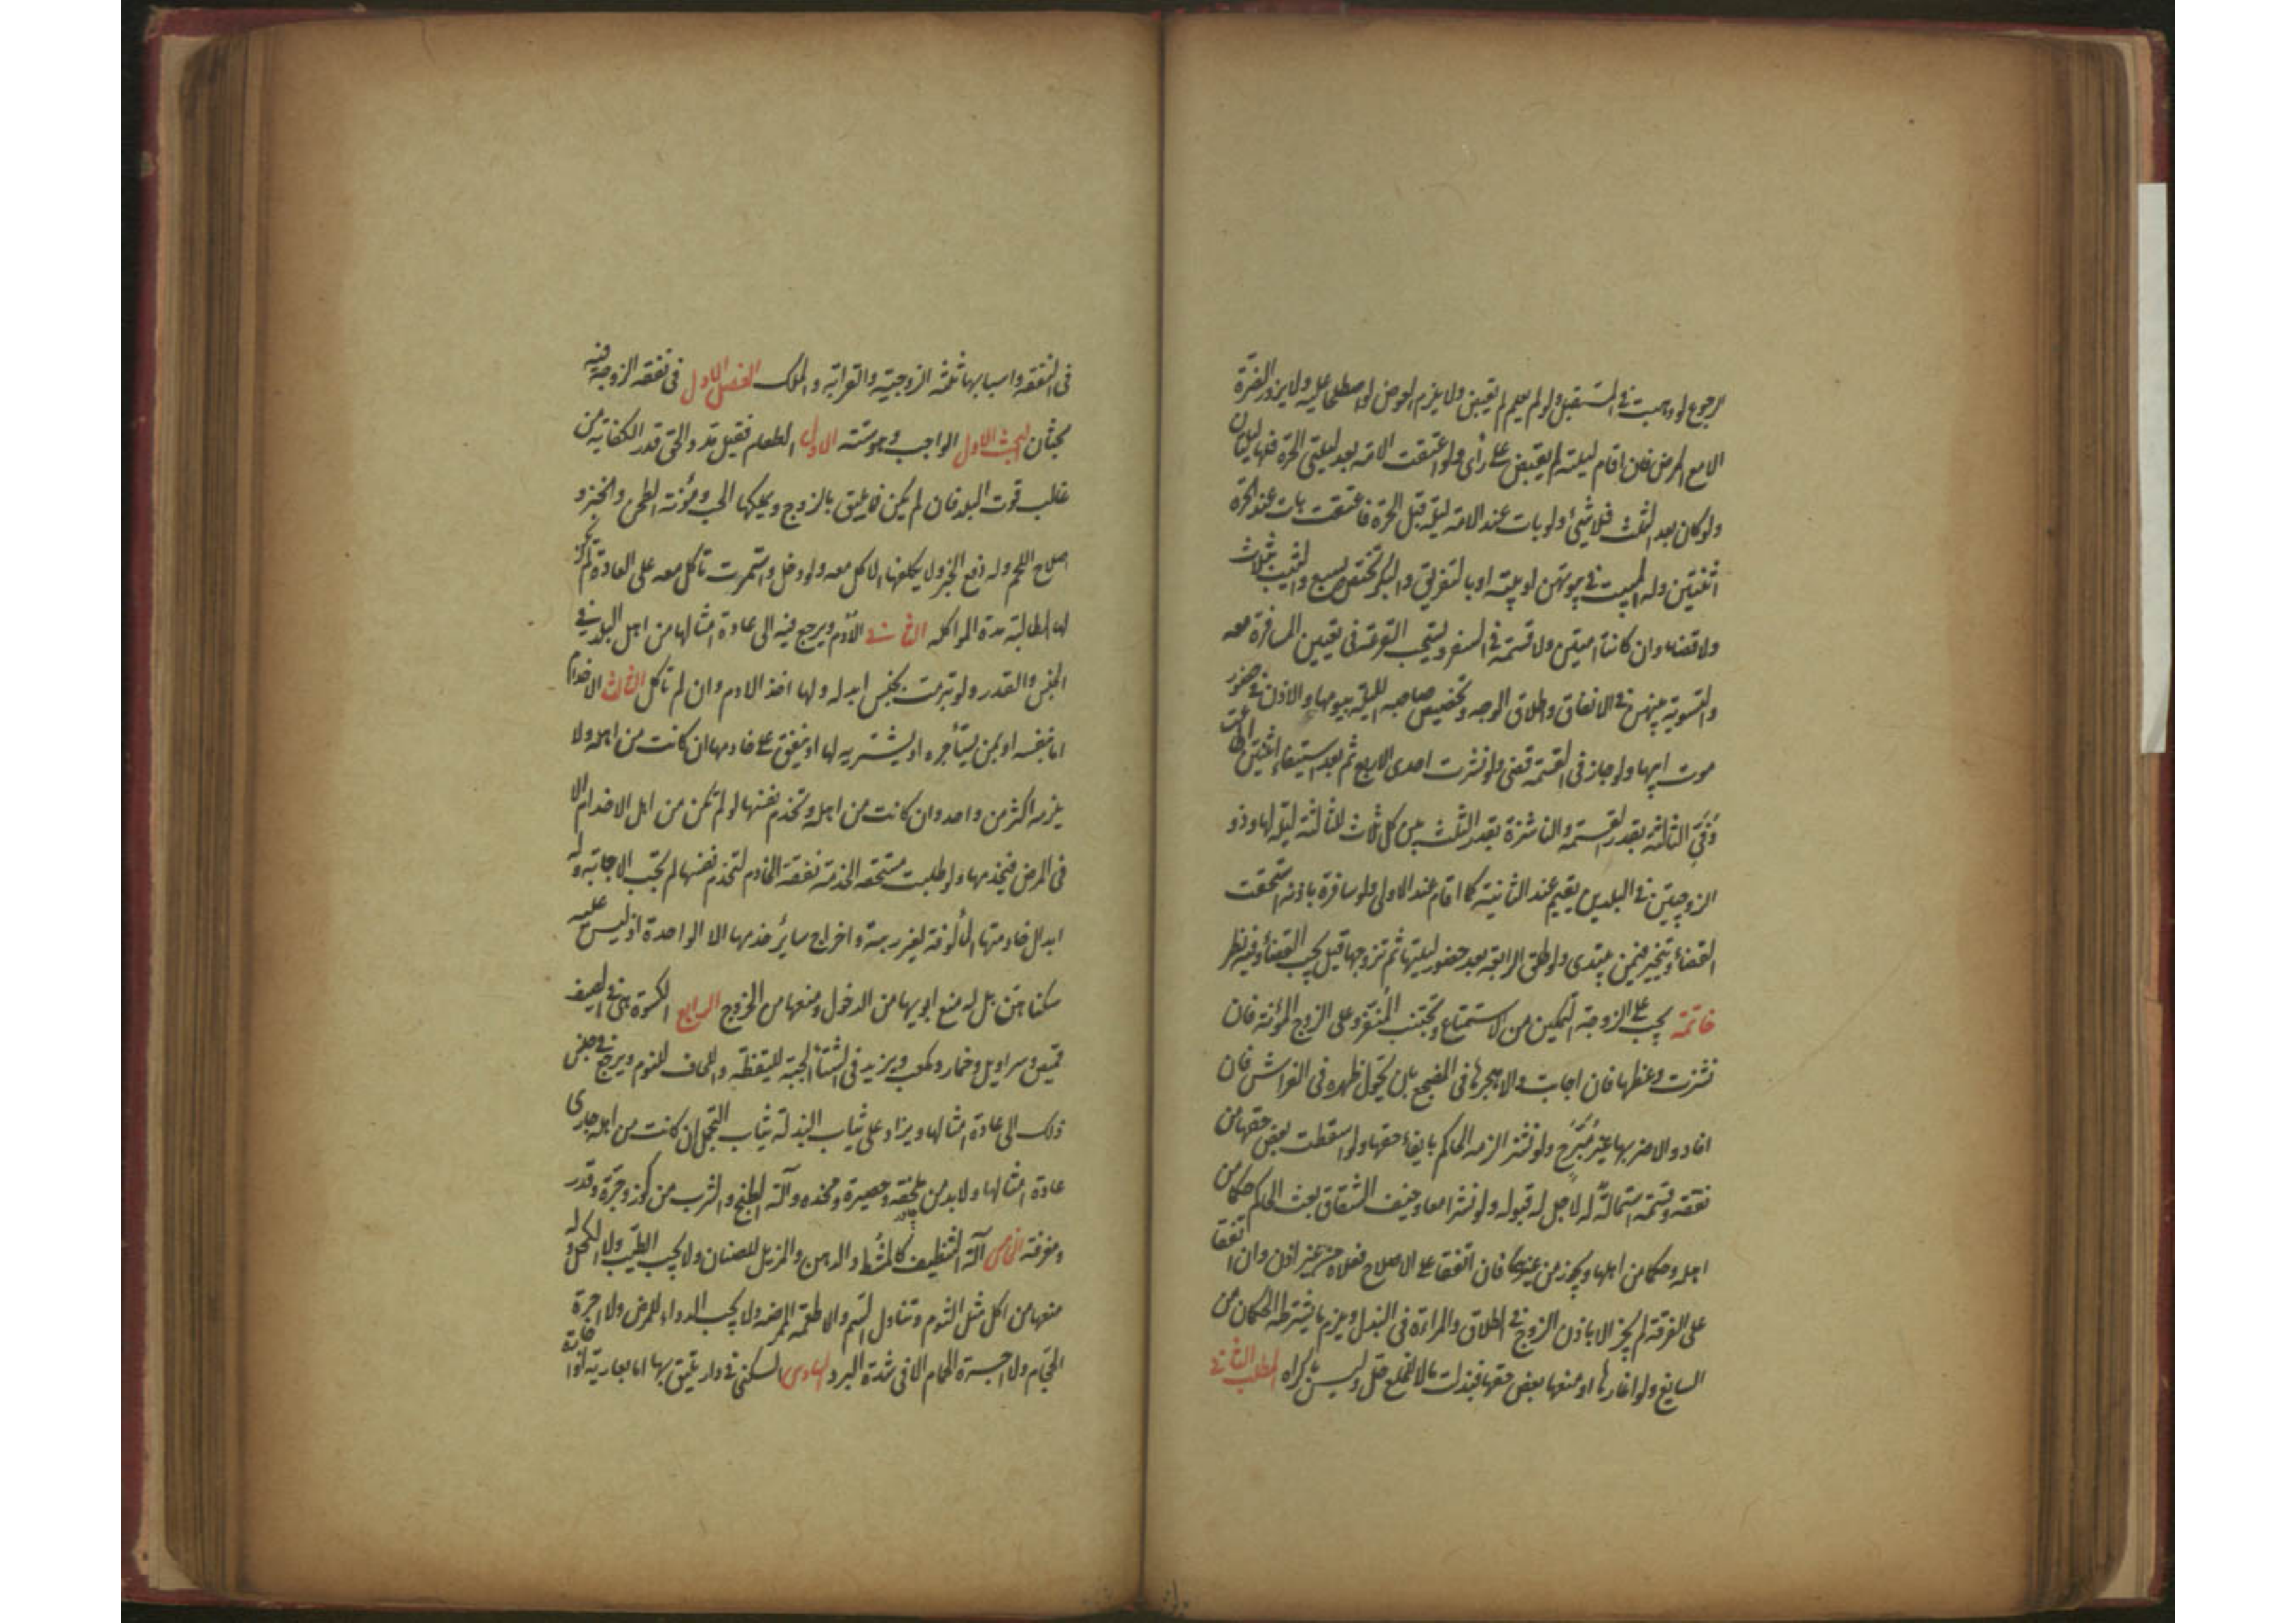 الرجوع لو وهبت في المستقبل ولو لم يعلم لم يقض ولا يلزم العوض لو اصطلحا عليه ولا يزور الضرة
الا مع المرض فان اقام ليلته لم يقض على رأى ولو اعتقت الامة بعد ليلتى الحرة فلها ليلتان
ولو كان بعد الثلث فلا شئ ولو بات عند الامة ليلة قبل الحرة فاعتقت بات عند الحرة
اثنتين وله المبيت في بيوتهن او بيته او بالتفريق والبكر تختص بسبع والثيب بثلاث
ولا قضاء وان كانتا امتين ولا قسمة في السفر ويستحب القرعة في تعيين المسافرة معه
والتسوية بينهن في الانفاق واطلاق الوجه وتخصيص صاحبة الليلة بيومها والاذن في حضور
موت ابيها ولو جار في القسمة قضى ولو نشزت احدى الاربع ثم بعد استيفاء اثنتين اطاعت
وفّى الثالثة بقدر القسمة والناشزة بقدر الثلث بين كل ثلاث للثالثة ليلة لها وذو
الزوجتين في البلدين يقيم عند الثانية كما اقام عند الاولى ولو سافرة باذنه استحقت
القضاء ويتخير فيمن يبتدى ولو طلق الرابعة بعد حضور ليلتها ثم تزوجها قيل يجب القضاء وفيه نظر
خاتمة يجب على الزوجة التمكين من الاستمتاع وتجتنب المنفر وعلى الزوج المؤنة فان
نشزت وعظها فان اجابت والا هجرها في المضجع بان يحول ظهره في الفراش فان
افاد والا ضربها غير مُبَرِّح ولو نشز الزمه الحاكم بايفاء حقها ولو اسقطت بعض حقها من
نفقة وقسمة استمالةً له لا حل له قبوله ولو نشزا معا وخيف الشقاق بعث الحاكم حكما من
اهله وحكما من اهلها ويجوز من غيرهما فان اتفقا على الاصلاح فعلاه من غير اذن وان اتفقا
على الفرقة لم يجز الا باذن الزوج في الطلاق والمراة في البذل ويلزم ما يشترطه الحكمان من
السايغ ولو اغارها او منعها بعض حقها فبذلت مالا للخلع حل وليس باكراه المطلب الثاني
في النفقة واسبابها ثلثة الزوجية والقرابة والملك الفصل الاول في نفقة الزوجة وفيه
بحثان البحث الاول الواجب وهو ستة الاول الطعام فقيل مد والحق قدر الكفاية من
غالب قوت البلد فان لم يكن فما يليق بالزوج ويملكها الحب ومؤنة الطحن والخبز و
اصلاح اللحم وله دفع الخبز ولا يكلفها الاكل معه ولو دخل واستمرت تاكل معه على العادة لم يكن
لها المطالبة مدة المواكلة الثاني الأدم ويرجع فيه الى عادة امثالها من اهل البلد في
الجنس والقدر ولو تبرمت بجنس ابدله ولها اخذ الادم وان لم تاكل الثالث الاخدام
اما بنفسه او بمن يستأجره او يشتريه لها او ينفق على خادمها ان كانت من اهله ولا
يلزمه اكثر من واحد وان كانت من اهله وتخدم نفسها لو لم تكن من اهل الاخدام الا
في المرض فيخدمها ولو طلبت مستحقة الخدمة نفقة الخادم لتخدم نفسها لم تجب الاجابة وله
ابدال خادمتها المألوفة لغير ريبة واخراج سائر خدمها الا الواحدة اذ ليس عليه
سكناهن بل له منع ابويها من الدخول ومنعها من الخروج الرابع الكسوة وهى في الصيف
قميص وسراويل وخمار ومكعب ويزيد في الشتاء الجبة لليقظة واللحاف للنوم ويرجع في جنس
ذلك الى عادة امثالها ويزاد على ثياب البذلة ثياب التجمل ان كانت من اهله جرى
عادة امثالها ولا بد من ملحفة وحصيرة ومخده وآلة الطبخ والشرب من كوز وجرّة وقدر
ومغرفة الخامس آلة التنظيف كالمشط والدهن والمزيل للصنان ولا يجب الطيب ولا الكحل وله
منعها من اكل مثل الثوم وتناول السم والاطعمة الممرضة ولا يجب الدواء للمرض ولا اجرة
الحجّام ولا اجرة الحمام الا في شدة البرد السادس السكنى في دار يليق بها اما بعارية او اجارة